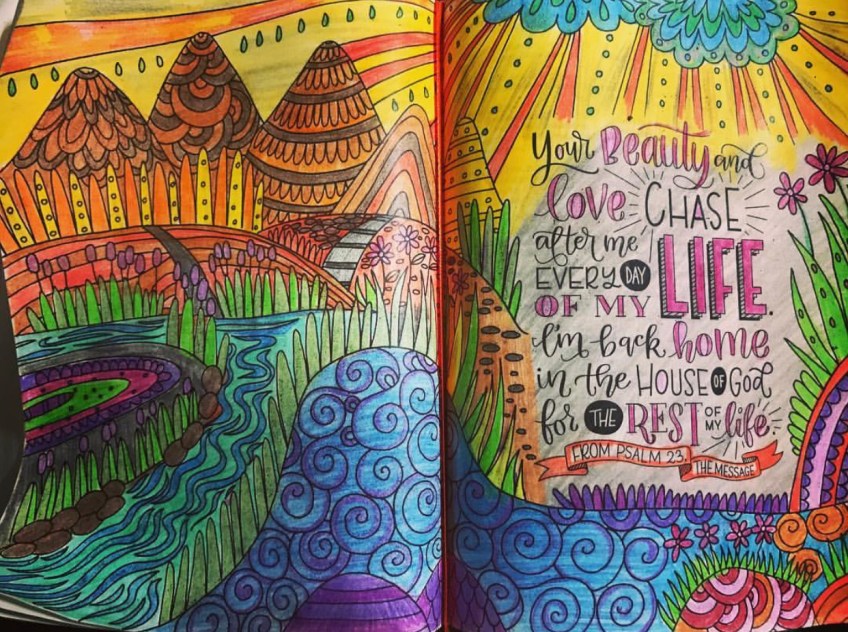 Your Beauty and
love CHASE
after me
EVERY DAY
OF MY LIFE.
I'm back home
in the HOUSE OF GOD
for THE REST OF MY life.
FROM PSALM 23,
THE MESSAGE